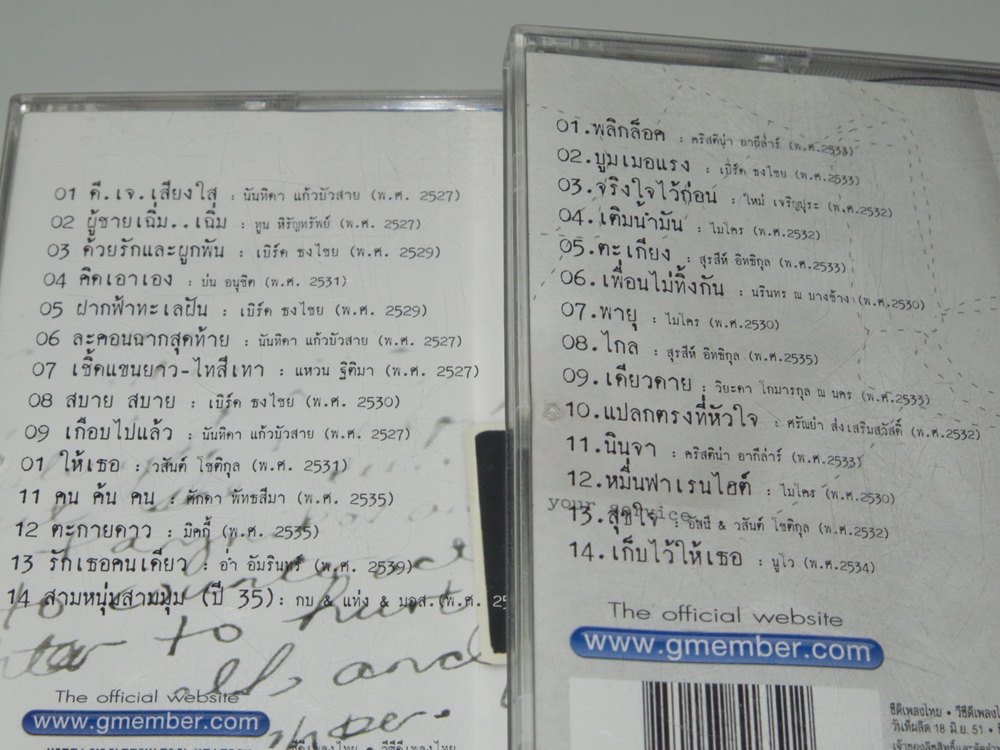 01 ดี.เจ.เสียงใส : นันทิดา แก้วบัวสาย (พ.ศ. 2527)
02 ผู้ชายเฉิ่ม..เฉิ่ม : ทูน หิรัญทรัพย์ (พ.ศ. 2527)
03 ด้วยรักและผูกพัน : เบิร์ด ธงไชย (พ.ศ. 2529)
04 คิดเอาเอง : บ่น อนุชิต (พ.ศ. 2531)
05 ฝากฟ้าทะเลฝัน : เบิร์ด ธงไชย (พ.ศ. 2529)
06 ละคอนฉากสุดท้าย : นันทิดา แก้วบัวสาย (พ.ศ. 2527)
07 เชิ้ตแขนยาว-ไทสีเทา : แหวน ฐิติมา (พ.ศ. 2527)
08 สบาย สบาย : เบิร์ด ธงไชย (พ.ศ. 2530)
09 เกือบไปแล้ว : นันทิดา แก้วบัวสาย (พ.ศ. 2527)
01 ให้เธอ : วสันต์ โชติกุล (พ.ศ. 2531)
11 คน ค้น คน : ศักดา พัทธสีมา (พ.ศ. 2535)
12 ตะกายดาว : มิคกี้ (พ.ศ. 2535)
13 รักเธอคนเดียว : อ่ำ อัมรินทร์ (พ.ศ. 2539)
14 สามหนุ่มสามมุม (ปี 35) : กบ & แท่ง & มอส. (พ.ศ. 25
to hurt
to
all, and
The official website
www.gmember.com
01.พลิกล็อค : คริสติน่า อากีล่าร์ (พ.ศ.2533)
02.บูมเมอแรง : เบิร์ด ธงไชย (พ.ศ.2533)
03.จริงใจไว้ก่อน : ใหม่ เจริญปุระ (พ.ศ.2532)
04.เติมน้ำมัน : ไมโคร (พ.ศ.2532)
05.ตะเกียง : สุรสีห์ อิทธิกุล (พ.ศ.2533)
06.เพื่อนไม่ทิ้งกัน : นรินทร ณ บางช้าง (พ.ศ.2530)
07.พายุ : ไมโคร (พ.ศ.2530)
08.ไกล : สุรสีห์ อิทธิกุล (พ.ศ.2535)
09.เดียวดาย : วิยะดา โกมารกุล ณ นคร (พ.ศ.2533)
10.แปลกตรงที่หัวใจ : ศรัณย่า ส่งเสริมสวัสดิ์ (พ.ศ.2532)
11.นินจา : คริสติน่า อากีล่าร์ (พ.ศ.2533)
12.หมื่นฟาเรนไฮต์ : ไมโคร (พ.ศ.2530)
your service
13.สุขใจ : อัสนี & วสันต์ โชติกุล (พ.ศ.2532)
14.เก็บไว้ให้เธอ : นูโว (พ.ศ.2534)
The official website
www.gmember.com
ซีดีเพลงไทย • วีซีดีเพลงไ
วันที่ผลิต 18 มิ.ย. 51 •